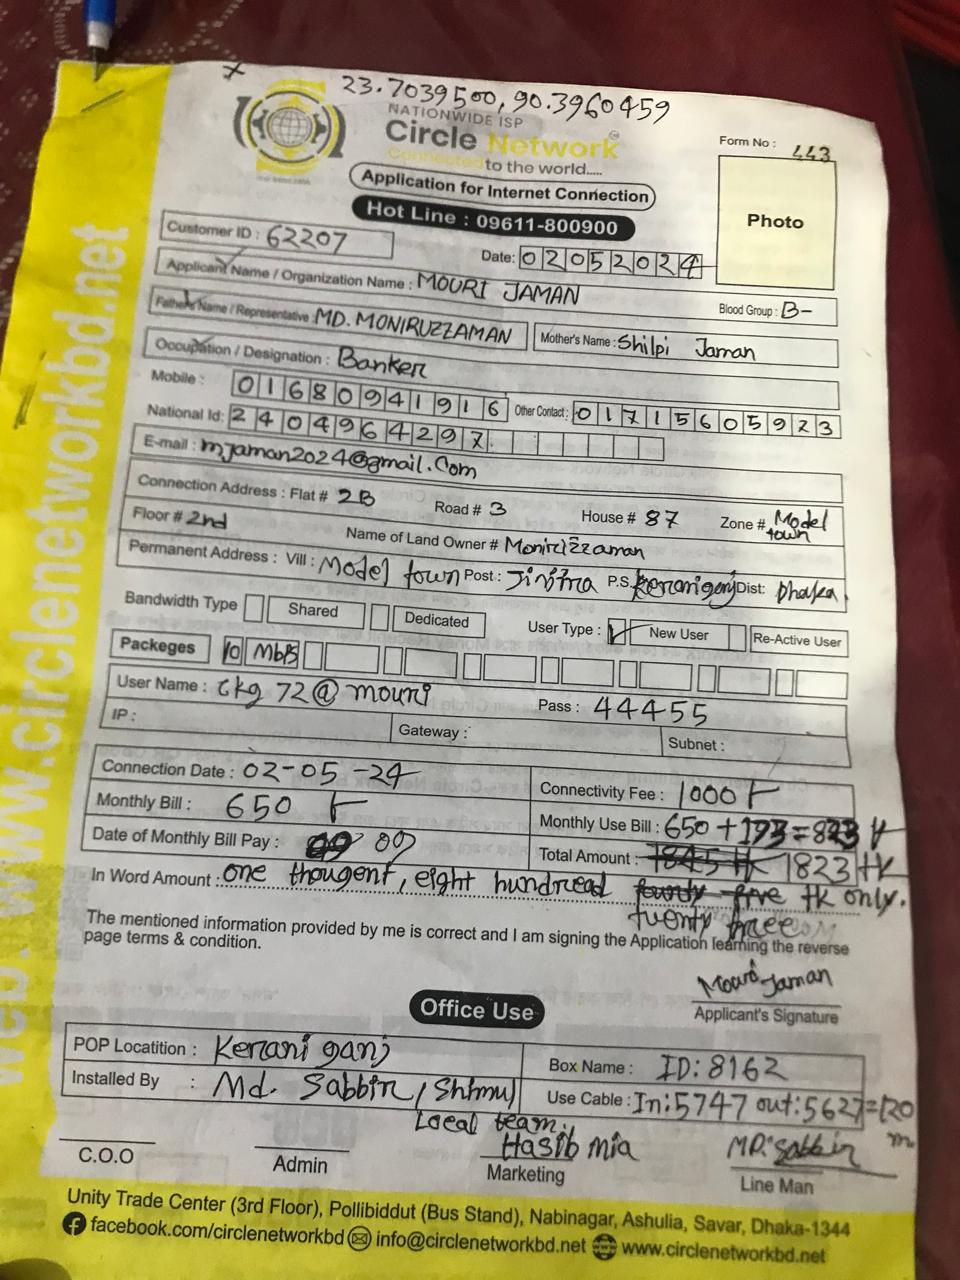 23.7039500, 90.3960459
NATIONWIDE ISP
Circle Network
Connected to the world.....
Form No : 443
Application for Internet Connection
Hot Line : 09611-800900
Photo
Customer ID : 62207
Date: 02052024
Applicant Name / Organization Name : MOURI JAMAN
Blood Group : B-
Father's Name / Representative : MD. MONIRUZZAMAN Mother's Name : Shilpi Jaman
Occupation / Designation : Banker
Mobile : 01680941916 Other Contact : 01715605923
National Id: 2404964297
E-mail : mjaman2024@gmail.Com
Connection Address : Flat # 2B Road # 3 House # 87 Zone # Model town
Floor # 2nd Name of Land Owner # Monirizzaman
Permanent Address : Vill : Model town Post : Jinjira P.S. keranigonj Dist: Dhaka.
Bandwidth Type Shared Dedicated User Type : New User Re-Active User
Packeges 10 Mbps
User Name : Ckg 72@mouri Pass : 44455
IP : Gateway : Subnet :
Connection Date : 02-05-24 Connectivity Fee : 1000 t
Monthly Bill : 650 t Monthly Use Bill : 650+173=823 tk
Date of Monthly Bill Pay : 09 Total Amount : 1845 tk 1823 tk
In Word Amount : one thougent, eight hundread fourty five tk only.
twenty free
The mentioned information provided by me is correct and I am signing the Application learning the reverse
page terms & condition.
Mouri Jaman
Applicant's Signature
Office Use
POP Locatition : Kerani ganj Box Name : ID: 8162
Installed By : Md. Sabbir / Shimul Use Cable : In:5747 out:5627=120 m
Local team.
Hasib mia
MD. Sabbir
C.O.O Admin Marketing Line Man
Unity Trade Center (3rd Floor), Pollibiddut (Bus Stand), Nabinagar, Ashulia, Savar, Dhaka-1344
facebook.com/circlenetworkbd info@circlenetworkbd.net www.circlenetworkbd.net
web: www.circlenetworkbd.net